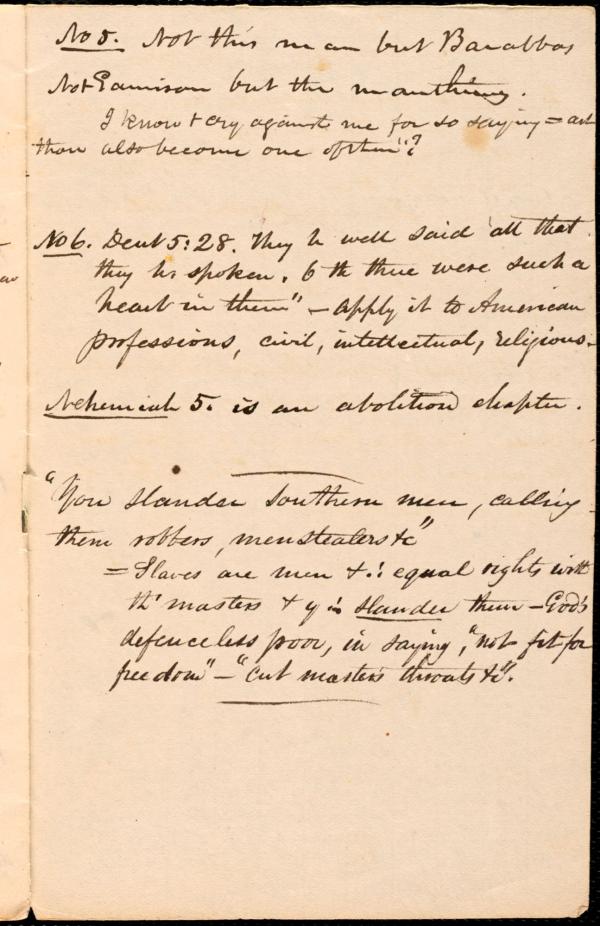 No 5. Not this man but Barabbas
Not Garrison but the manthing.
I know + cry against me for so saying = art
thou also become one of them"?
No 6. Deut 5:28. They h well said all that
they hv spoken. O th there were such a
heart in them" – apply it to American
professions, civil, intellectual, religious –
Nehemiah 5. is an abolition chapter.
"You slander Southern men, calling
them robbers, menstealers &c"
= Slaves are men & ∴ equal rights with
th masters & y slander them – God's
defenceless poor, in saying, "not fit for
freedom" – "cut masters throats &c".